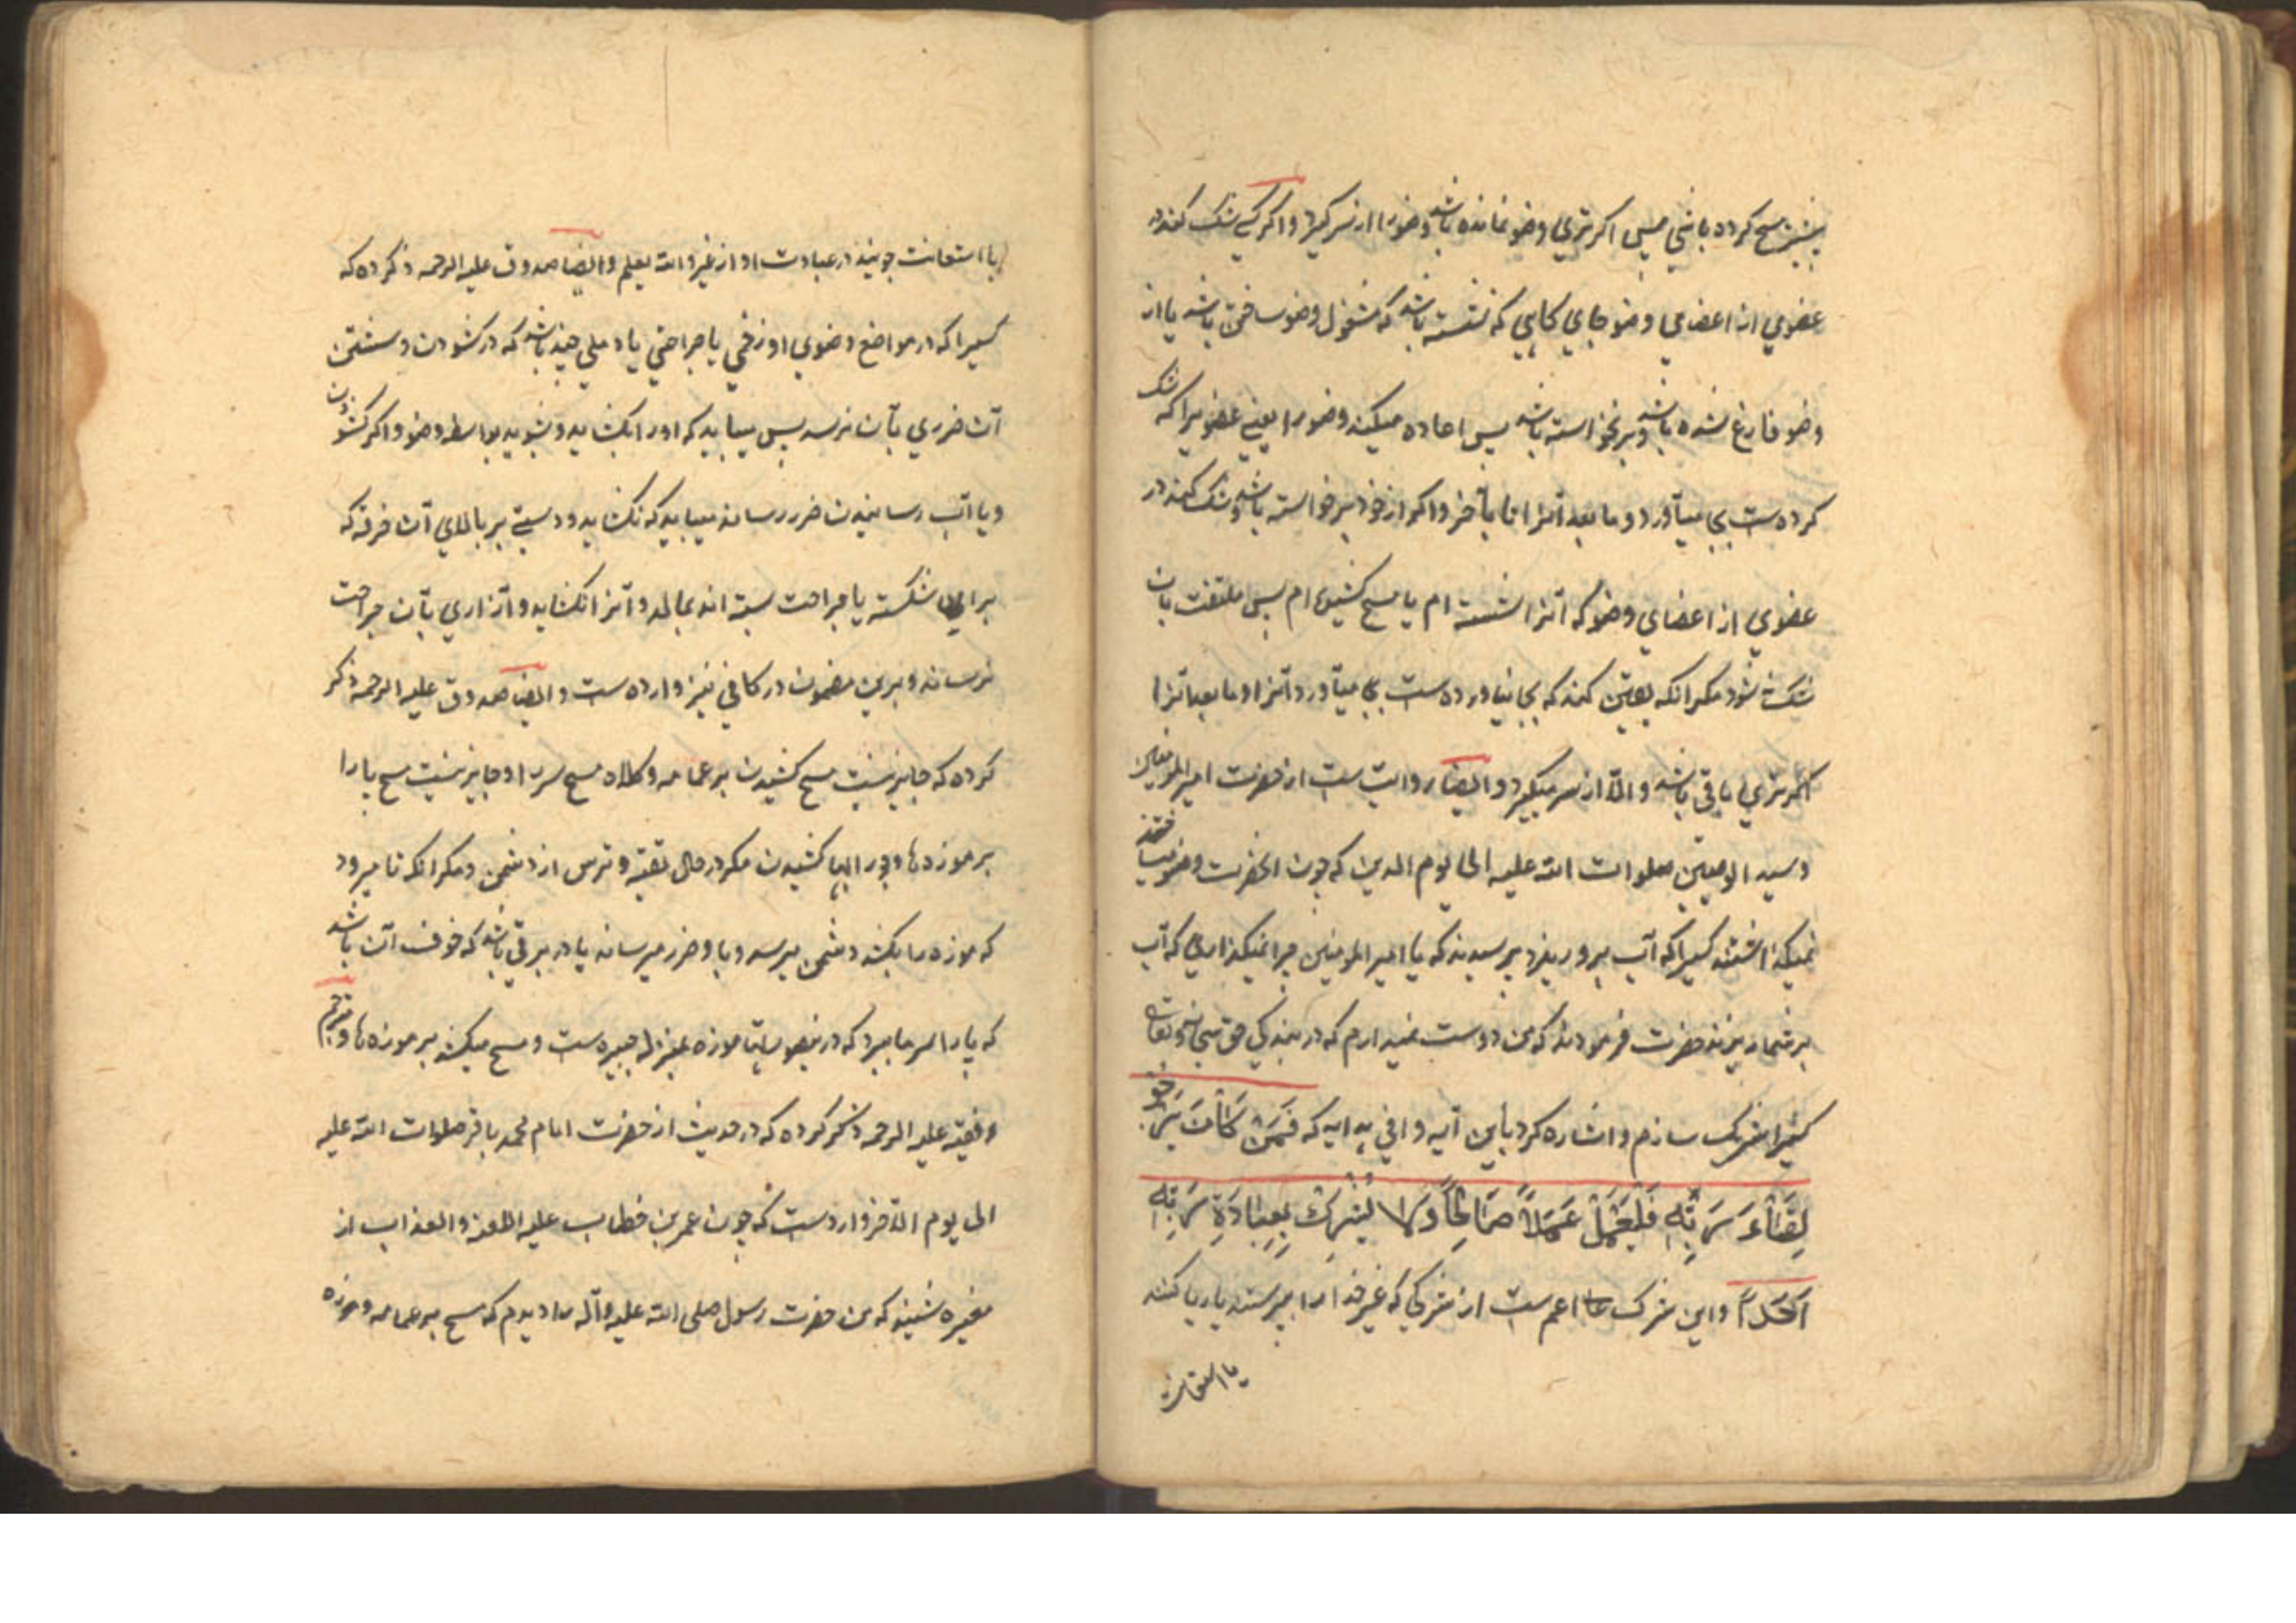 پیشین مسح کرده باشی پس اگر تری وضو نمانده باشد وضو را از سر گیرد و اگر کسی شک کند در
عضوی از اعضای وضو جای که نشسته باشد که مشغول وضو ساختن باشد یا از
وضو فارغ شده باشد و برنخواسته باشد پس اعاده میکند وضو را یعنی عضویرا که شک
کرده ست بجا میآورد و ما بعد آنرا تا بآخر و اگر از خود برخواسته باشد و شک کند در
عضوی از اعضای وضو که آنرا شسته ام یا مسح کشیده ام پس ملتفت بان
شک نشود مگر انکه یقین کند که بجا نیاورده ست بجا میآورد آنرا و ما بعد آنرا
اگر تری باقی باشد والّا از سر میگیرد و ایضا روایت ست از حضرت امیر المومنین
و سید الوصیین صلوات الله علیه الی یوم الدین که چون انحضرت وضو میساختند
نمیگذاشتند کسیرا که آب برو ریزد پرسیدند که یا امیر المومنین چرا نمیگذاری که آب
بر شما ریزند حضرت فرمودند که من دوست نمیدارم که در بندگی حق سبحانه و تعالی
کسیرا شریک سازم و اشاره کرد باین آیه وافی هدایه که فَمَنْ كَانَ يَرْجُو
لِقَاءَ رَبِّهِ فَلْيَعْمَلْ عَمَلًا صَالِحًا وَلَا يُشْرِكْ بِعِبَادَةِ رَبِّهِ
اَحَدًا و این شرک اعم ست از شرکی که غیر خدا را پرستند یا ریا کنند
یا استعانت
یا استعانت جویند در عبادت او از غیر والله یعلم و ایضا صدوق علیه الرحمه ذکر کرده که
کسیرا که در مواضع وضوی او زخمی یا جراحتی یا دملی چند باشد که در کشودن و شستن
آن ضرری بآن نرسد پس میباید که اورا بکشاید و بشوید بواسطه وضو و اگر کشودن
و یا آب رسانیدن ضرر رساند میباید که نکشاید و دستی بر بالای آن خرقه که
بر شکسته یا جراحت بسته اند بمالد و آنرا نکشاید و آزاری بآن جراحت
نرساند و برین مضمون در کافی نیز وارده ست و ایضا صدوق علیه الرحمه ذکر
کرده که جایز نیست مسح کشیدن بر عمامه و کلاه مسح سر را و جایز نیست مسح پا را
بر موزه ها و کشیدن مگر در حال تقیه و ترس از دشمن و مگر انکه تا میرود
که موزه را بکند دشمن میرسد و باو ضرر میرساند یا در برقی باشد که خوف آن باشد
که پا را سرما ببرد که در موزه بمنزله جبیره ست و مسح میکشد بر موزه ها و مترجم
فقیه علیه الرحمه ذکر کرده که در حدیث از حضرت امام محمد باقر صلوات الله علیه
الی یوم الآخر وارد ست که چون عمر بن خطاب علیه اللعنه والعذاب از
مغیره شنید که من حضرت رسول صلی الله علیه وآله را دیدم که مسح بر عمامه و موزه